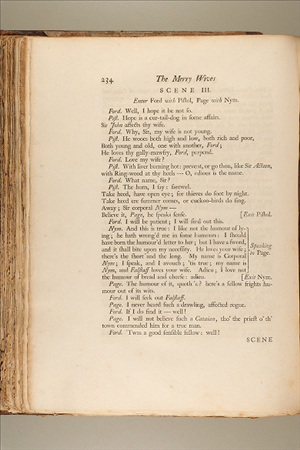 234 The Merry Wives
SCENE III.
Enter Ford with Pistol, Page with Nym.
Ford. Well, I hope it be not so.
Pist. Hope is a cur-tail-dog in some affairs.
Sir John affects thy wife.
Ford. Why, Sir, my wife is not young.
Pist. He wooes both high and low, both rich and poor,
Both young and old, one with another, Ford;
He loves thy gally-mawfry, Ford, perpend.
Ford. Love my wife?
Pist. With liver burning hot: prevent, or go thou, like Sir Acteon,
with Ring-wood at thy heels — O, odious is the name.
Ford. What name, Sir?
Pist. The horn, I say: farewel.
Take heed, have open eye; for thieves do foot by night.
Take heed ere summer comes, or cuckoo-birds do sing.
Away; Sir corporal Nym —
Believe it, Page, he speaks sense. [Exit Pistol.
Ford. I will be patient; I will find out this.
Nym. And this is true: I like not the humour of ly-
ing; he hath wrong'd me in some humours: I should
have born the humour'd letter to her; but I have a sword,
and it shall bite upon my necessity. He loves your wife;
there's the short and the long. My name is Corporal
Nym; I speak, and I avouch; 'tis true; my name is
Nym, and Falstaff loves your wife. Adieu; I love not
the humour of bread and cheese: adieu. [Exit Nym.
[Speaking
to Page.
Page. The humour of it, quoth 'a? here's a fellow frights hu-
mour out of its wits.
Ford. I will seek out Falstaff.
Page. I never heard such a drawling, affected rogue.
Ford. If I do find it — well!
Page. I will not believe such a Cataian, tho' the priest o' th'
town commended him for a true man.
Ford. 'Twas a good sensible fellow: well!
SCENE